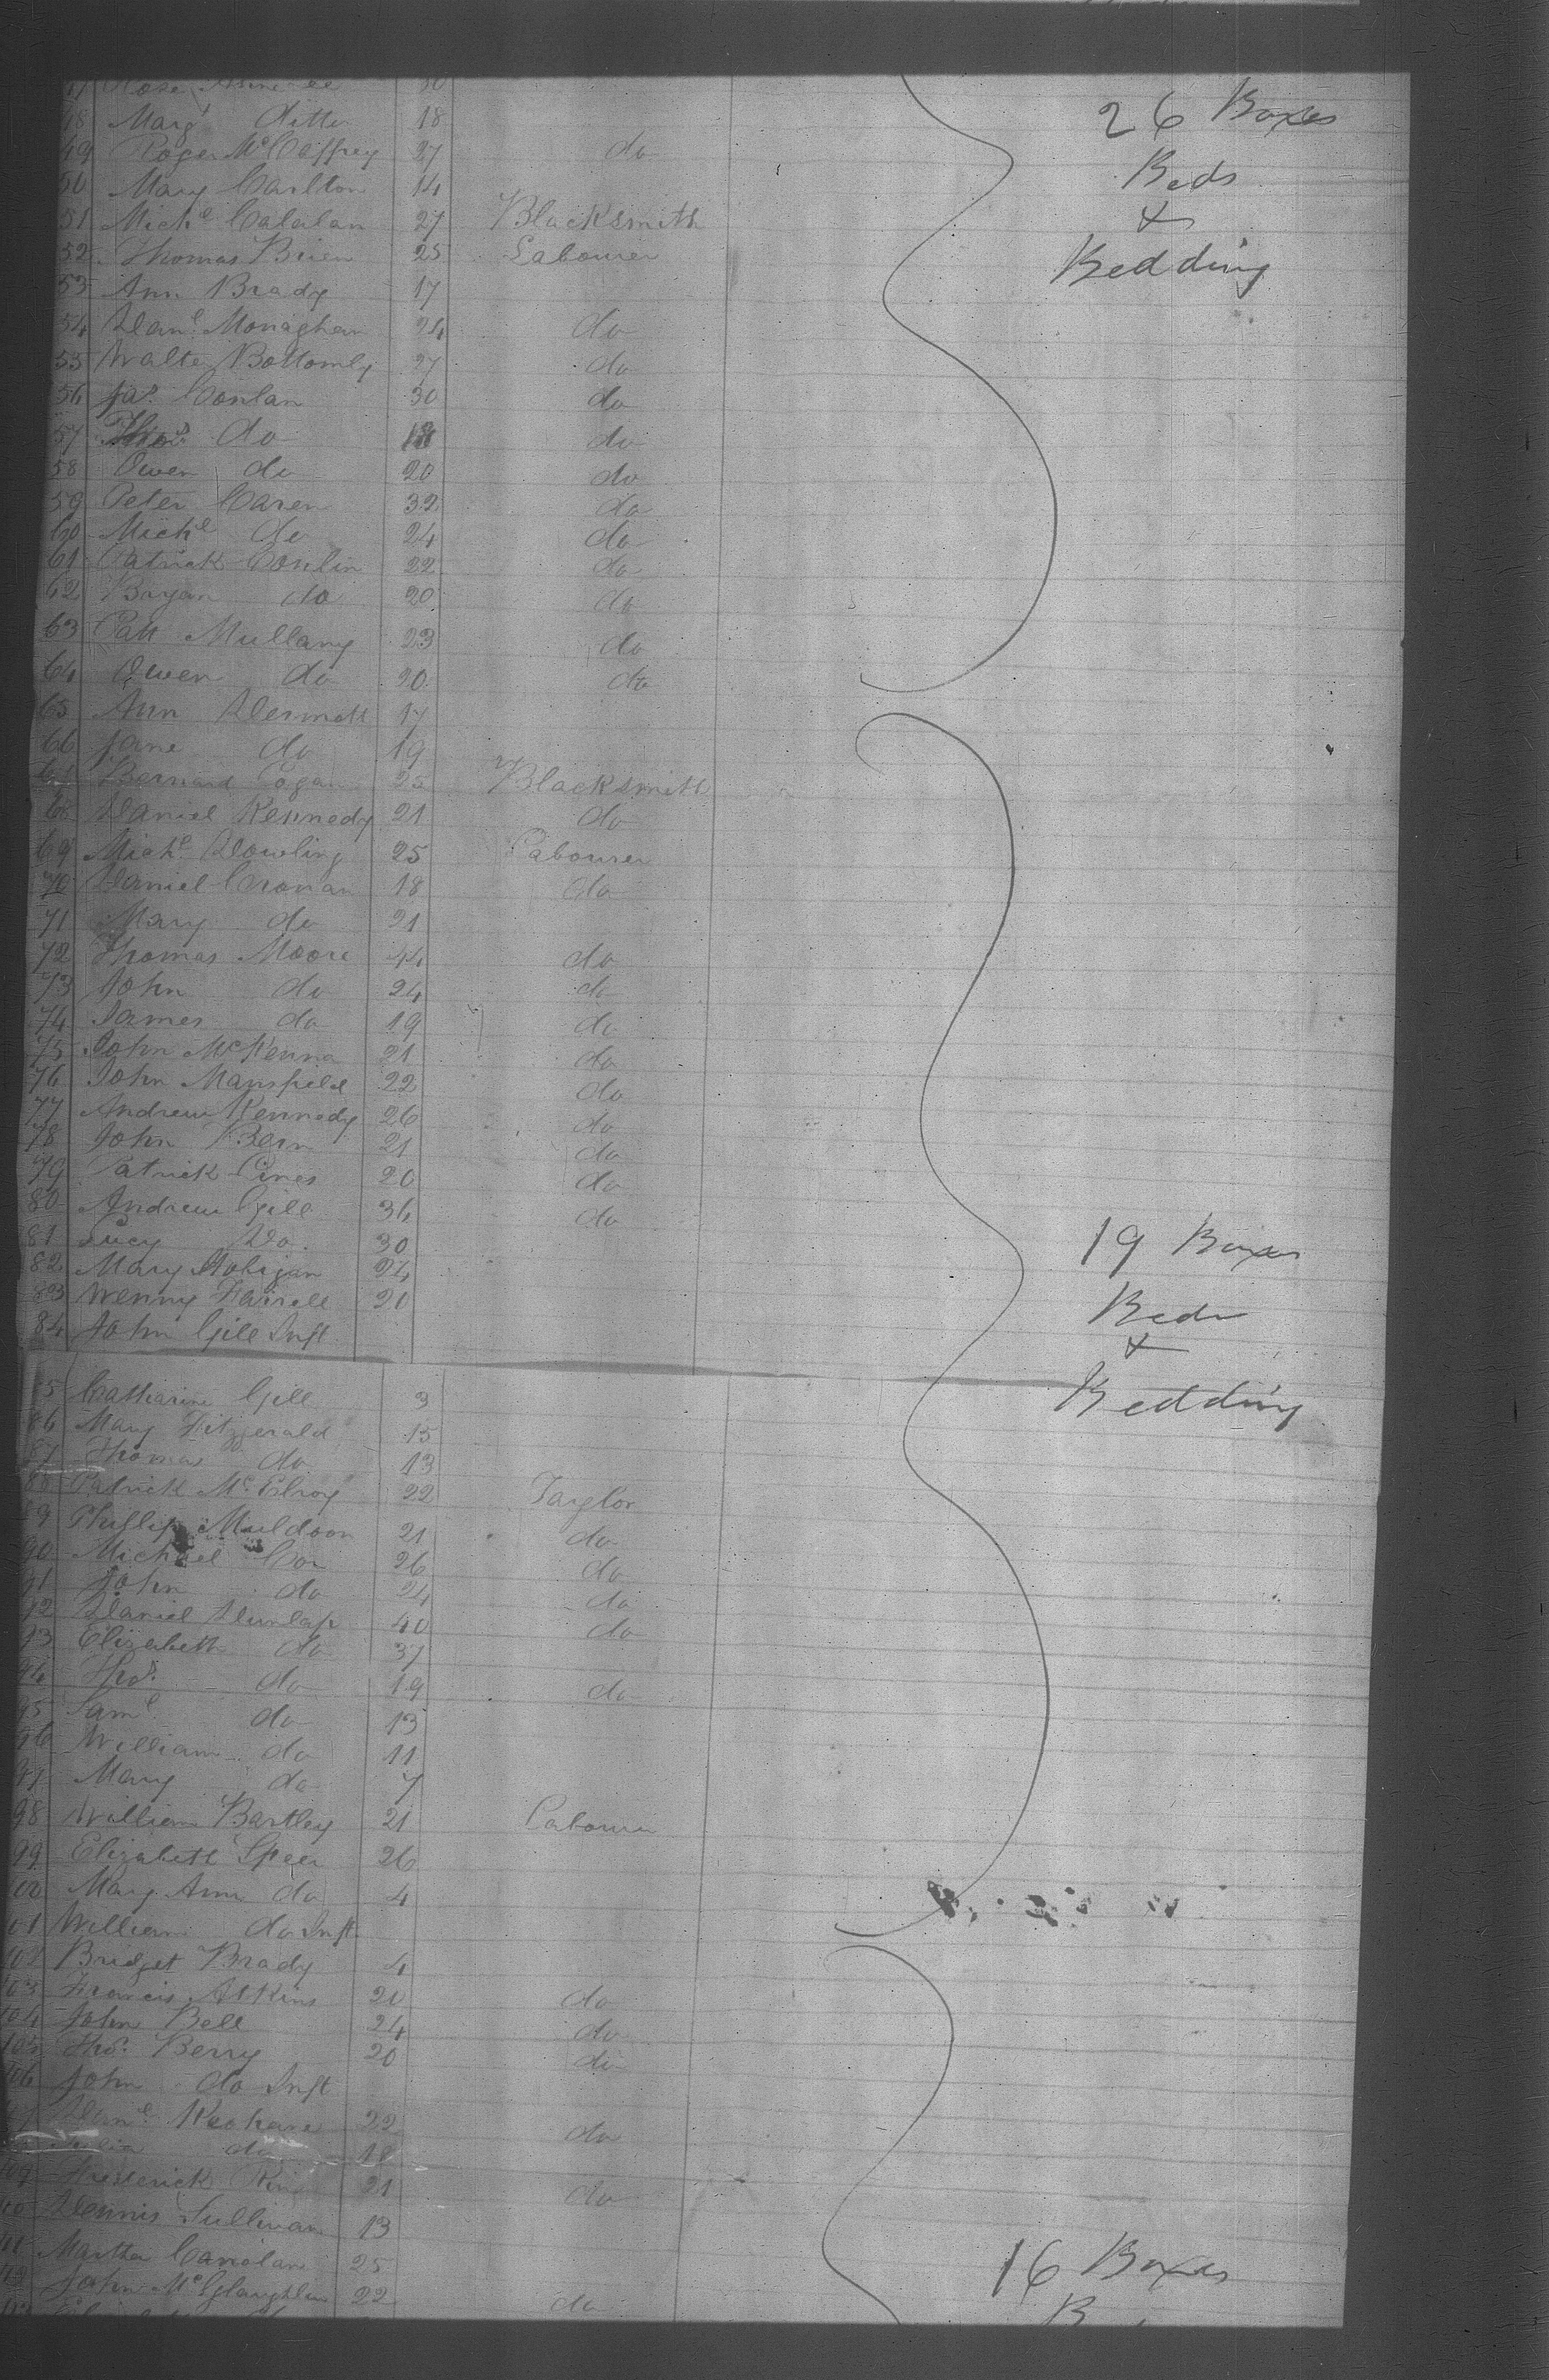 48 Marg<sup>t</sup> ditto 18
49 Roger McCaffrey 27 do
50 Mary Carlton 14
51 Mich<sup>l</sup> 27 Blacksmith
52 Thomas Brien 25 Labourer
53 Ann Brady 17
54 Dan<sup>l</sup> Monaghan 24 do
55 Walte Bottomly 27 do
56 Ja<sup>s</sup> Conlan 30 do
57 Tho<sup>s</sup> do 18 do
58 Owen do 20 do
59 Peter Caren 32 do
60 Mich<sup>l</sup> do 24 do
61 Patrick Conlin 22 do
62 Bryan do 20 do
63 Patt Mullany 23 do
64 Owen do 20 do
26 Boxes
Beds
&
Bedding
65 Ann Dermott 17
66 Jane do 19
67 Bernard Cogan 25 Blacksmith
68 Daniel Kennedy 21 do
69 Mich<sup>l</sup> Dowling 25 Labourer
70 Daniel Cronan 18 do
71 Mary do 21
72 Thomas Moore 44 do
73 John do 24 do
74 James do 19 do
75 John McKenna 21 do
76 John Mansfield 22 do
77 Andrew Kennedy 26 do
78 John Bern 21 do
79 Patrick 20 do
80 Andrew Gill 36 do
81 Lucy Do. 30
82 Mary 24
83 Wenny Farrell 20
84 John Gill Inft
85 Catharine Gill 3
86 Mary Fitzgerald 15
87 Thomas do 13
88 Patrick McElroy 22 Taylor
89 Phillip Muldoon 21 do
90 Michael Cox 26 do
91 John do 24 do
92 Daniel Dunlap 40 do
93 Elizabeth do 37
94 Tho<sup>s</sup> do 19 do
95 Sam<sup>l</sup> do 13
96 William do 11
97 Mary do 7
98 William Bartley 21 Labourer
99 Elizabeth Speer 26
100 Mary Ann do 4
101 William do Inft
19 Boxes
Beds
&
Bedding
102 Bridget Brady 4
103 Francis Askins 20 do
104 John Bell 24 do
105 Tho<sup>s</sup> Berry 20 do
106 John do Inft
107 Dan<sup>l</sup> Keohane 22 do
108 Julia do 18
109 Frederick King 21 do
110 Dennis Sullivan 13
111 Martha Canolan 25
112 John McGlaughlin 22 do
16 Boxes